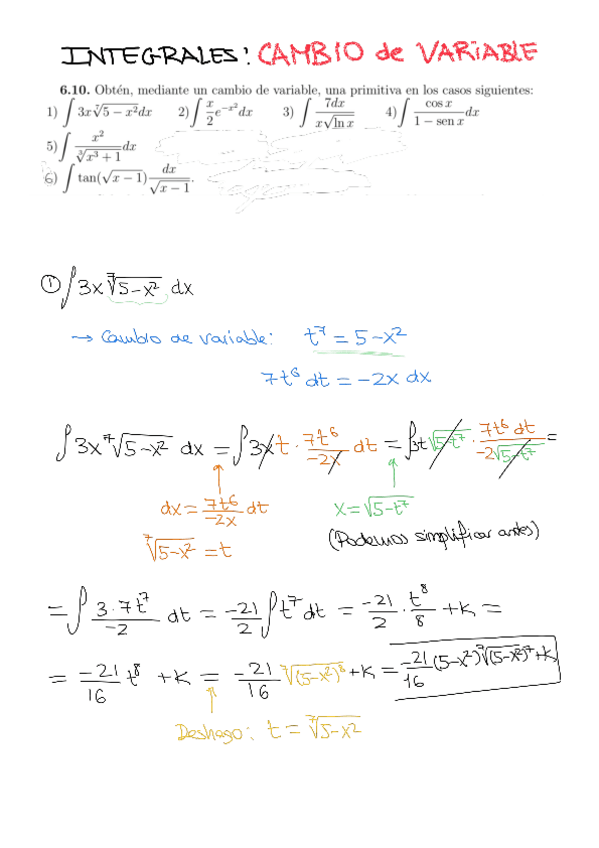 INTEGRALES: CAMBIO de VARIABLE
6.10. Obtén, mediante un cambio de variable, una primitiva en los casos siguientes:
1) ∫ 3x ⁷√(5 − x²) dx 2) ∫ x/2 e^(−x²) dx 3) ∫ 7dx/(x√(ln x)) 4) ∫ cos x/(1 − sen x) dx
5) ∫ x²/∛(x³ + 1) dx
6) ∫ tan(√(x − 1)) dx/√(x − 1).
① ∫ 3x ⁷√(5−x²) dx
→ Cambio de variable: t⁷ = 5−x²
7t⁶ dt = −2x dx
∫ 3x ⁷√(5−x²) dx = ∫ 3x t · 7t⁶/(−2x) dt = ∫ 3t √(5−t⁷) · 7t⁶ dt/(−2√(5−t⁷)) =
dx = 7t⁶/(−2x) dt x = √(5−t⁷)
⁷√(5−x²) = t (Podemos simplificar antes)
= ∫ 3·7t⁷/(−2) dt = −21/2 ∫ t⁷ dt = −21/2 · t⁸/8 + K =
= −21/16 t⁸ + K = −21/16 ⁷√(5−x²)⁸ + K = −21/16 (5−x²) ⁷√(5−x²)⁷ + K
Deshago: t = ⁷√(5−x²)